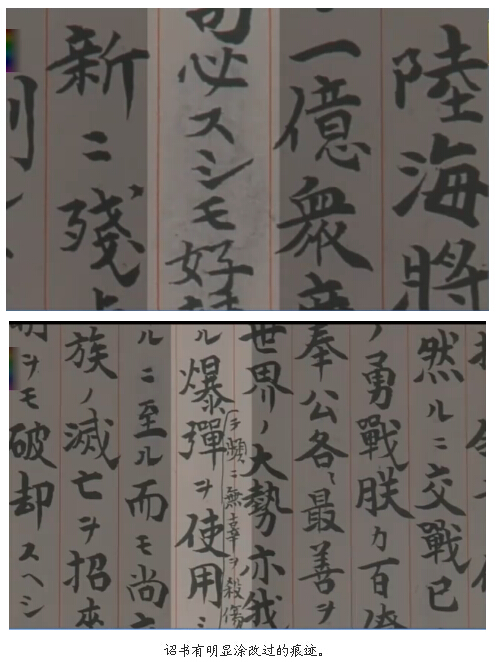 陸海將
一億衆
必スシモ好
新ニ残
然ルニ交戰已
ノ勇戰朕カ百僚
奉公各〻最善ヲ
世界ノ大勢亦我
ル爆彈ヲ使用シ
テ頻ニ無辜ヲ殺傷
ルニ至ル而モ尚交
族ノ滅亡ヲ招來
明ヲモ破却スヘシ
诏书有明显涂改过的痕迹。